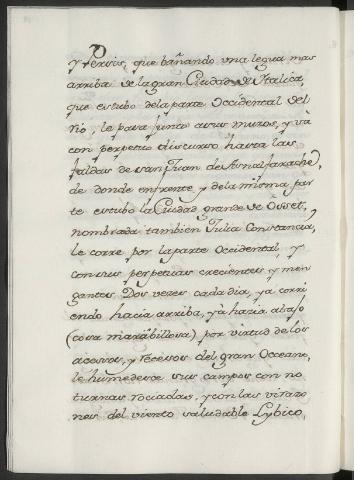 y Persis, que bañando una legua mas
arriba de la gran Ciudad de Italica,
que estubo dela parte Occidental del
rio, le para junto a sus muros, y va
con perpetuo discurso hasta las
faldas de san Juan de Asnalfarache,
de donde enfrente, y dela misma par
te estubo la Ciudad grande de Osset,
nombrada tambien Julia Constancia,
le corre por la parte Occidental, y
con sus perpetuas crecientes y men
gantes, Dos vezes cada dia, ya corri
endo hacia arriba, ya hazia abajo
(cosa marabillosa) por virtud de los
acesos, y recesos del gran Occeano,
le humedesce sus campos con no
turnas rociadas, y con las virazo
nes del viento saludable Lybico,